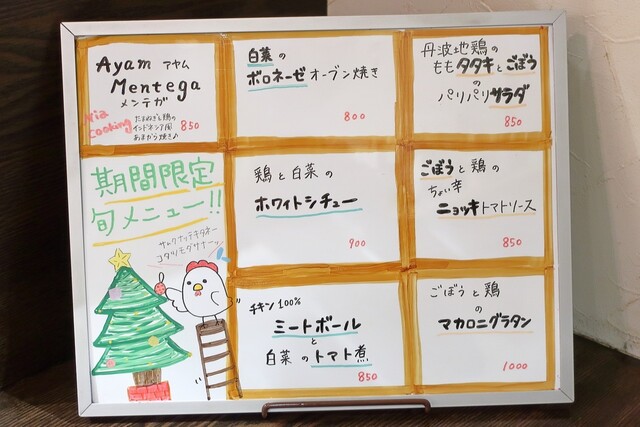 Ayam アヤム
Mentega
メンテガ
Nia
cooking
たまねぎと鶏の
インドネシア風
あまから焼き♪
850
白菜の
ボロネーゼ オーブン焼き
800
丹波地鶏の
もも タタキとごぼう
の
パリパリサラダ
850
期間限定
旬メニュー!!
サムクナッテキタネー
コタツモダサナーッ
鶏と白菜の
ホワイトシチュー
900
ごぼうと鶏の
ちょい辛
ニョッキトマトソース
850
チキン100%
ミートボール
と
白菜のトマト煮
850
ごぼうと鶏
の
マカロニグラタン
1000